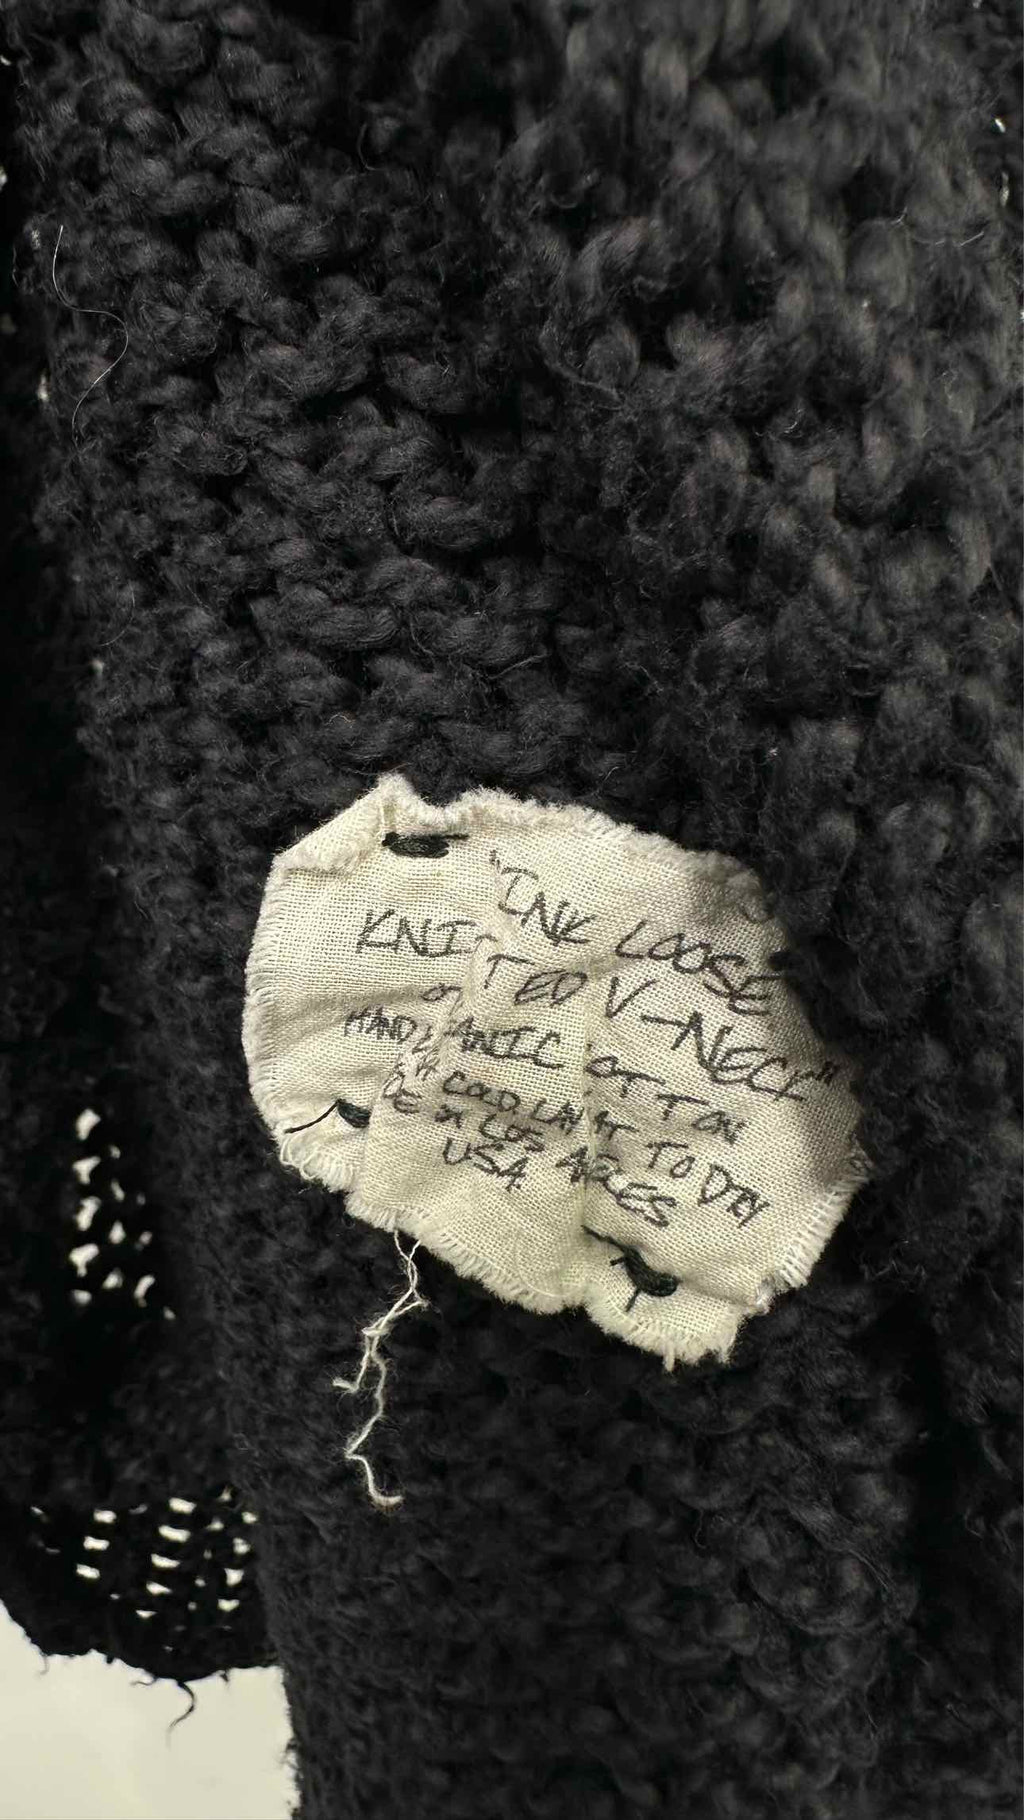 "INK LOOSE
KNITTED V-NECK"
ORGANIC COTTON
HAND COLD LAY TO DRY
LOS ANGELES
USA